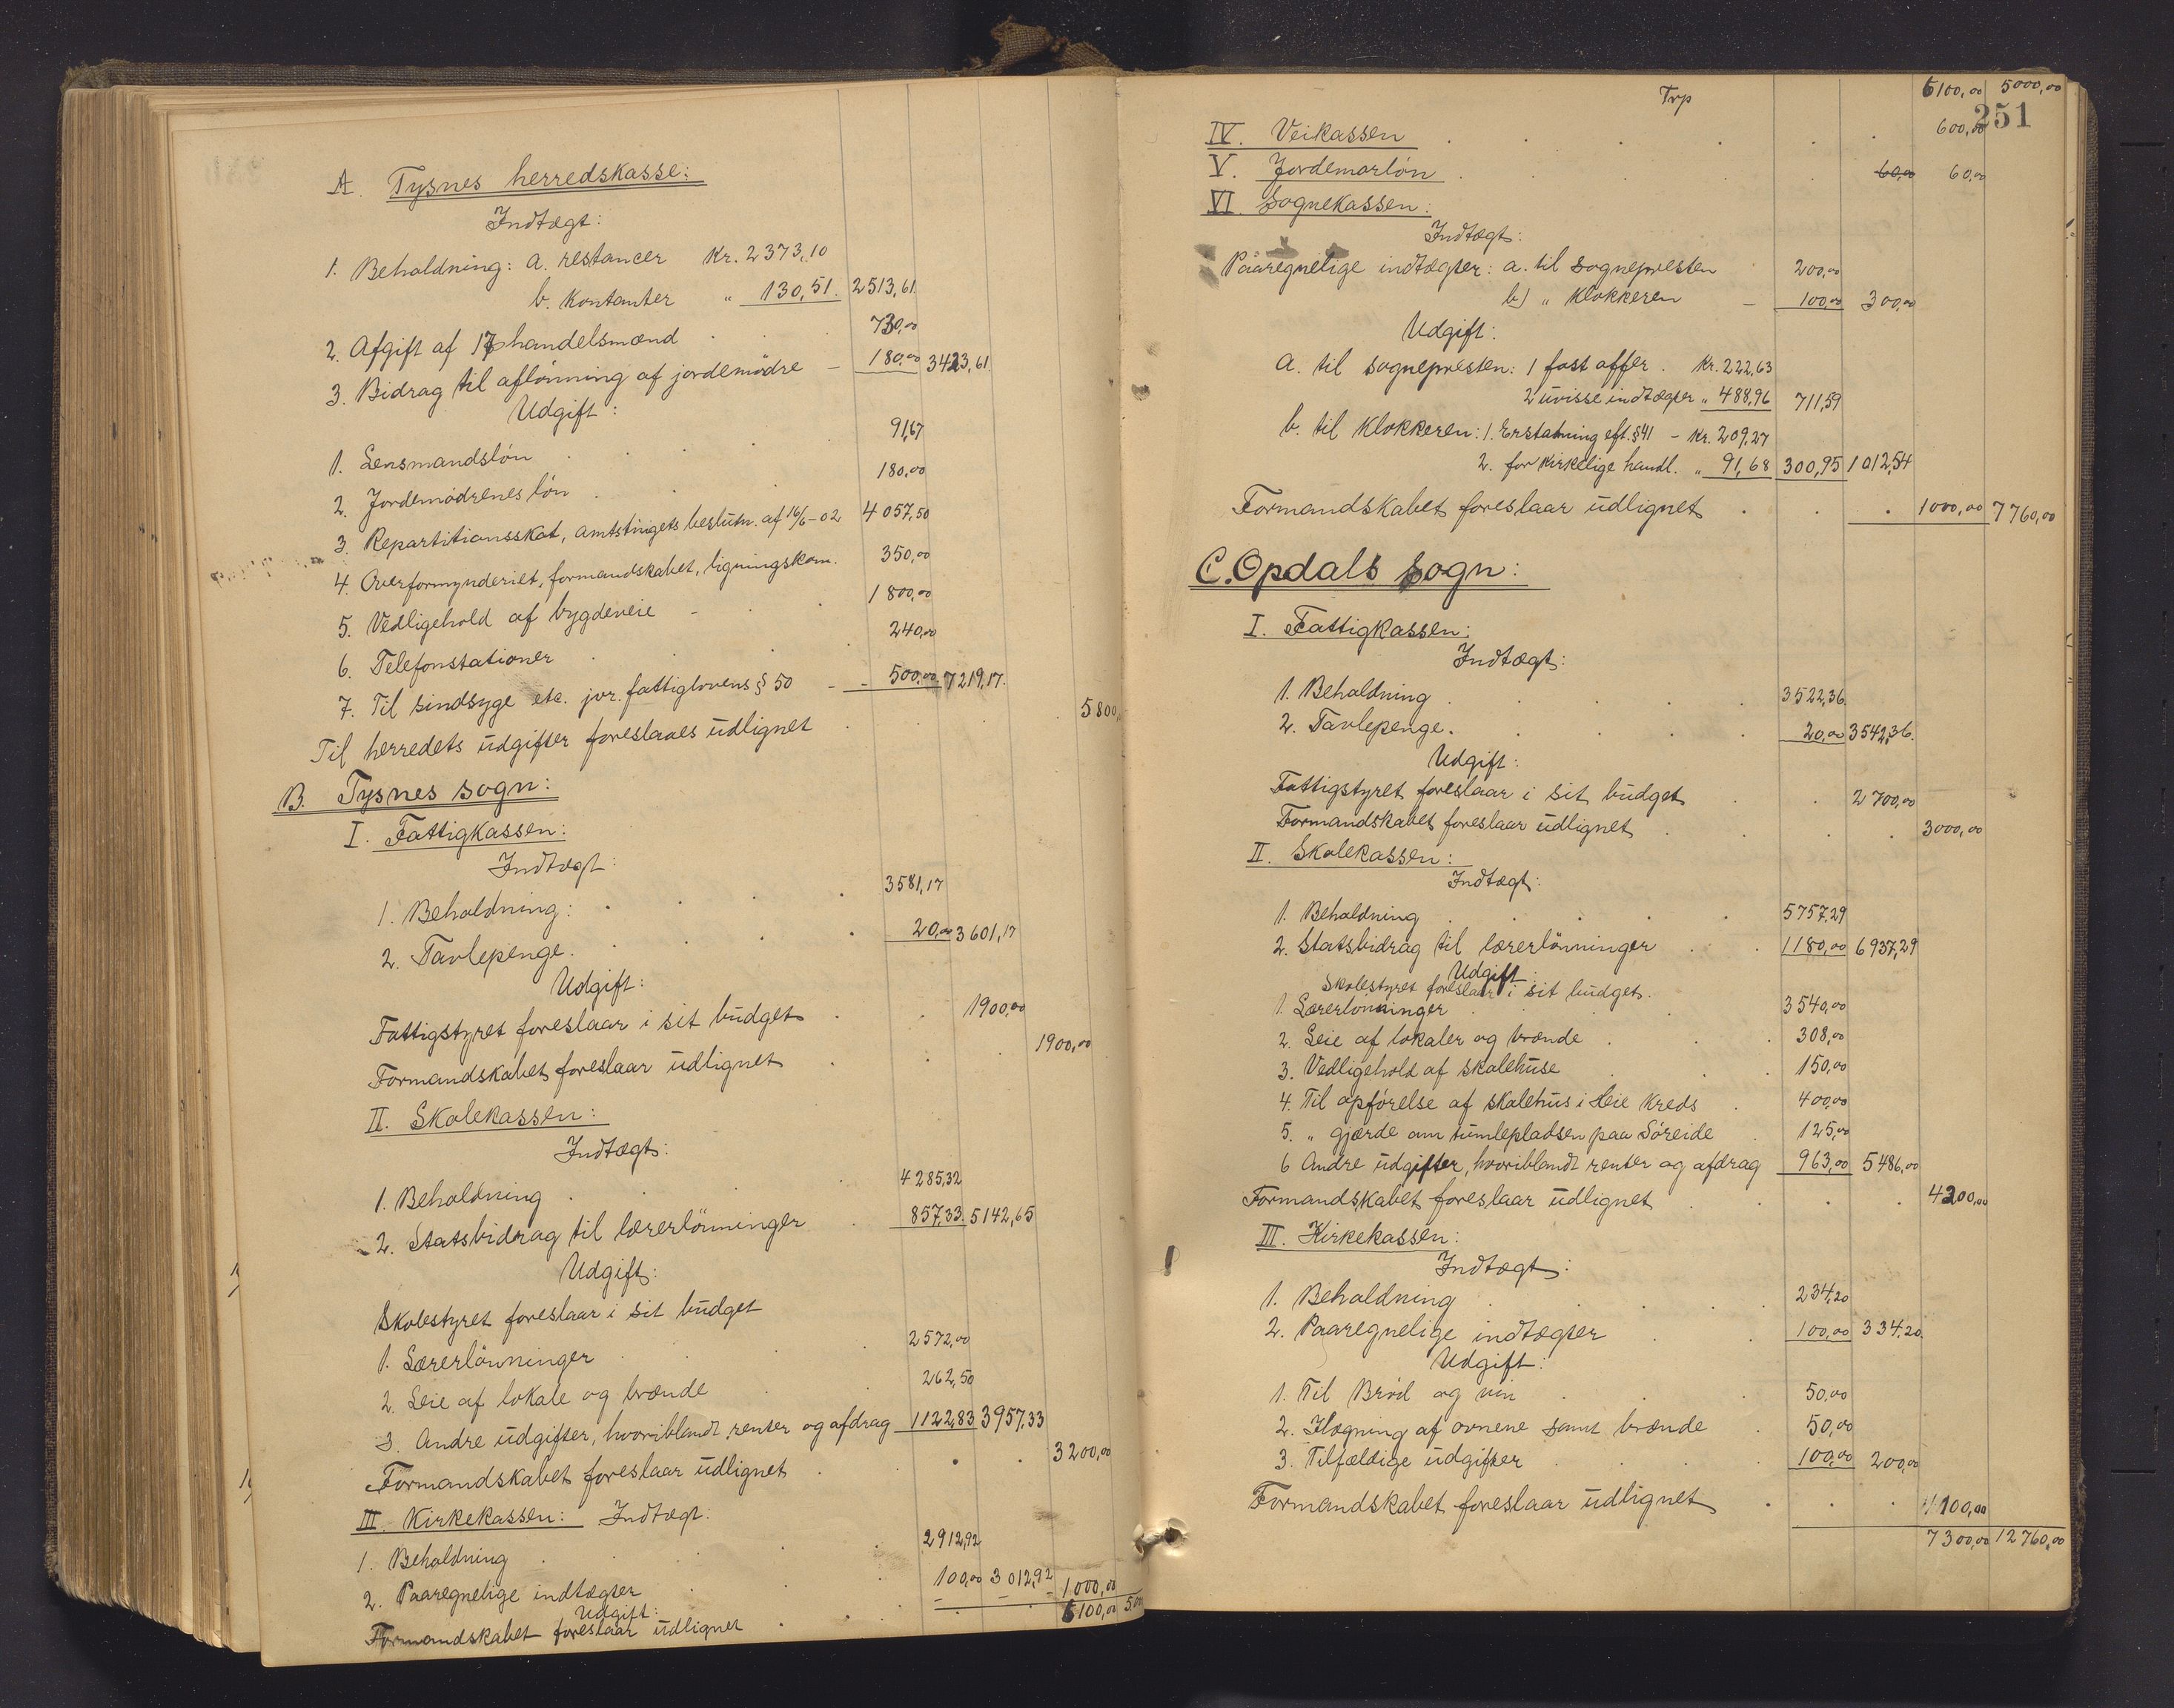 A. Tysnes herredskasse:
Indtægt:
1. Beholdning: a. restancer Kr. 2373,10
b. Kontanter " 130,51. 2513,61
2. Afgift af 17 handelsmænd 730,00
3. Bidrag til aflønning af jordemødre – 180,00 3423,61.
Udgift:
1. Lensmandsløn 91,67
2. Jordemødrenes løn 180,00
3. Repartitionsskat, amtstingets beslutn. af 16/6-02 4057,50
4. Overformynderiet, formandskabet, ligningskom. 350,00
5. Vedligehold af bygdeveie – 1800,00
6. Telefonstationer 240,00
7. Til sindsyge etc. jvr. fattiglovens § 50 – 500,00 7219,17.
Til herredets udgifter foreslaaes udlignet 5800,
B. Tysnes sogn:
I. Fattigkassen:
Indtægt:
1. Beholdning: 3581,17
2. Tavlepenge. 20,00 3601,17
Udgift:
Fattigstyret foreslaar i sit budget 1900,00
Formandskabet foreslaar udlignet 1900,00
II. Skolekassen:
Indtægt:
1. Beholdning 4285,32
2. Statsbidrag til lærerlønninger 857,33. 5142,65
Udgift:
Skolestyret foreslaar i sit budget
1. Lærerlønninger 2572,00
2. Leie af lokale og brænde 262,50
3. Andre udgifter, hvoriblandt renter og afdrag 1122,83 3957,33
Formandskabet foreslaar udlignet 3200,00
III. Kirkekassen: Indtægt:
1. Beholdning 2912,92
2. Paaregnelige indtægter 100,00 3012,92
Udgift:
Formandskabet foreslaar udlignet 1000,00
6100,00
Trp 6100,00 5000,00
251
IV. Veikassen 600,00
V. Jordemorløn 60,00 60,00
VI. Sognekassen:
Indtægt:
Paaregnelige indtægter: a. til sognepresten 200,00
b) " Klokkeren – 100,00 300,00
Udgift:
a. til sognepresten: 1 fast offer. Kr. 222,63
2 uvisse indtægter " 488,96 711,59
b. til Klokkeren: 1. Erstatning eft. § 41 – Kr. 209,27
2. for Kirkelige handl. " 91,68 300,95 1012,54
Formandskabet foreslaar udlignet 1000,00 7760,00
C. Opdals Sogn:
I. Fattigkassen:
Indtægt:
1. Beholdning 3522,36.
2. Tavlepenge. 20,00 3542,36.
Udgift:
Fattigstyret foreslaar i sit budget 2700,00
Formandskabet foreslaar udlignet 3000,00
II. Skolekassen:
Indtægt:
1. Beholdning 5757,29
2. Statsbidrag til lærerlønninger 1180,00 6937,29
Udgift:
Skolestyret foreslaar i sit budget.
1. Lærerlønninger 3540,00
2. Leie af lokaler og brænde 308,00
3. Vedligehold af skolehuse 150,00
4. Til opførelse af skolehus i Heie Kreds 400,00
5. " gjærde om tumlepladsen paa Søreide 125,00
6 Andre udgifter, hvoriblandt renter og afdrag 963,00 5486,00
Formandskabet foreslaar udlignet 4200,00
III. Kirkekassen:
Indtægt:
1. Beholdning 234,20
2. Paaregnelige indtægter 100,00 334,20.
Udgift:
1. Til Brød og vin 50,00
2. Ilægning af ovnene samt brænde 50,00
3. Tilfældige udgifter 100,00 200,00
Formandskabet foreslaar udlignet 100,00
7300,00 12760,00